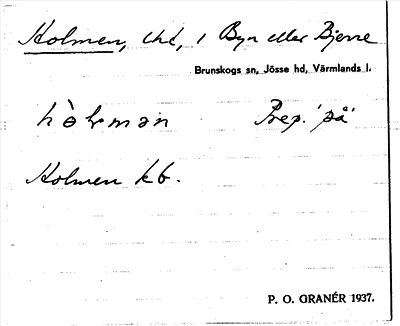 Holmen, lhd, i Byn eller Bjerne
Brunskogs sn, Jösse hd, Värmlands l.
Prep. 'på'
Holmen kb.
P. O. GRANÉR 1937.